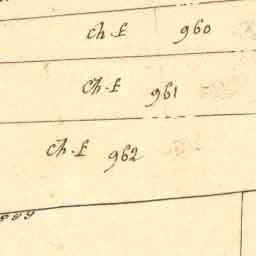 ch.f 960
ch.f 961
ch.f 962